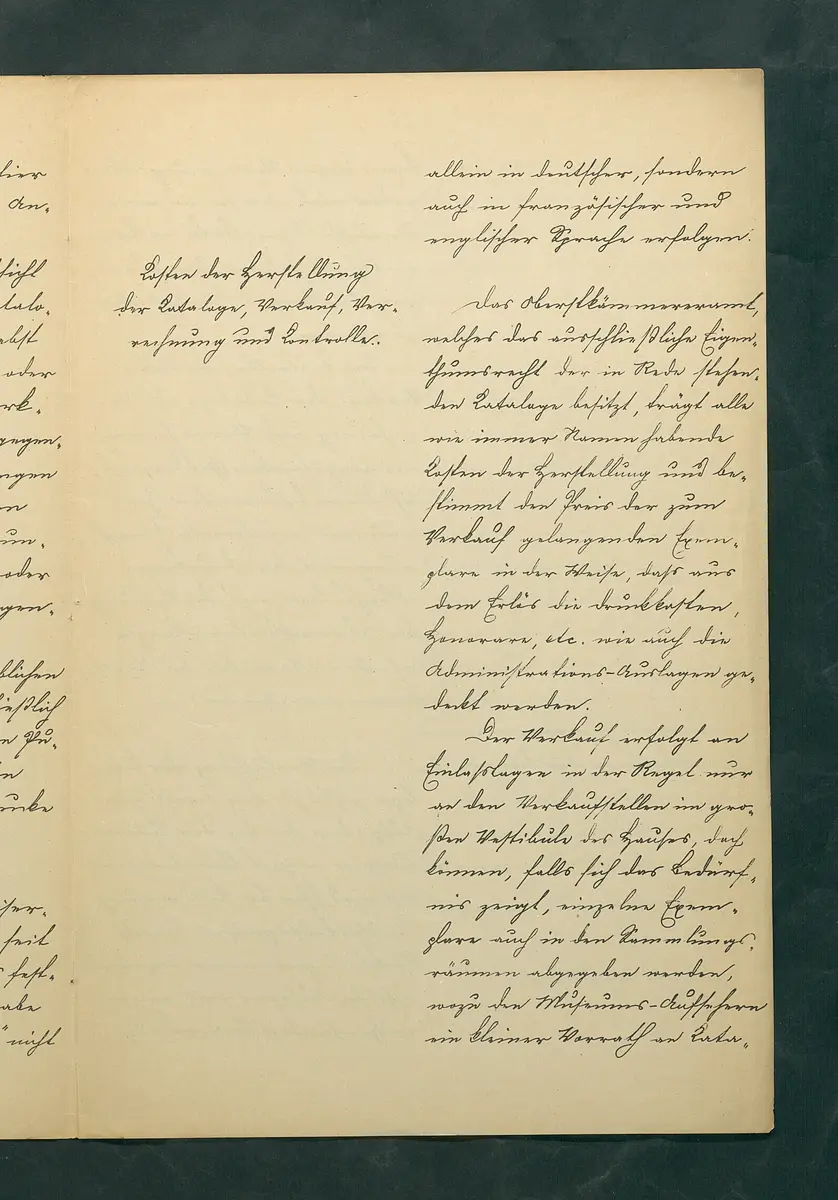 hier
An-
sicht
talo-
abst
oder
rk-
gegen-
ngen
en
un-
oder
gen-
blichen
ießlich
n Pu-
in
unke
iser-
seit
s fest-
abe
" nicht
Kosten der Herstellung
der Kataloge, Verkauf, Ver-
rechnung und Kontrolle.
allein in deutscher, sondern
auch in französischer und
englischer Sprache erfolgen.
Das Oberstkämmereramt,
welches das ausschließliche Eigen-
thumsrecht der in Rede stehen-
den Kataloge besitzt, trägt alle
wie immer Namen habende
Kosten der Herstellung und be-
stimmt den Preis der zum
Verkauf gelangenden Exem-
plare in der Weise, dass aus
dem Erlös die Druckkosten,
Honorare, etc. wie auch die
Administrations-Auslagen ge-
deckt werden.
Der Verkauf erfolgt an
Einlasstagen in der Regel nur
an den Verkaufstellen im gro-
ßen Vestibule des Hauses, doch
können, falls sich das Bedürf-
nis zeigt, einzelne Exem-
plare auch in den Sammlungs-
räumen abgegeben werden,
wozu den Museums-Aufsehern
ein kleiner Vorrath an Kata-